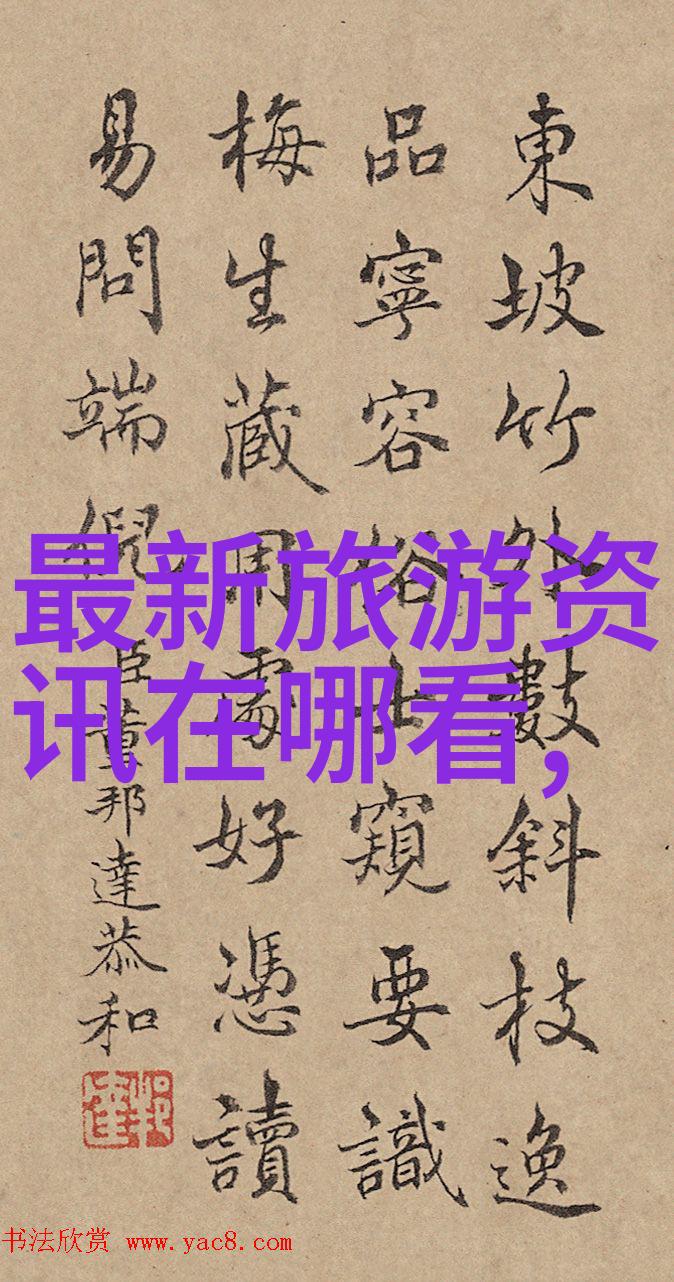 東坡竹外數斜枝逸
品寧容俗士窺要識
梅生藏用處好憑讀
易問端倪
臣董邦達恭和
最新旅游资
讯在哪看,
书法欣赏 www.yac8.com